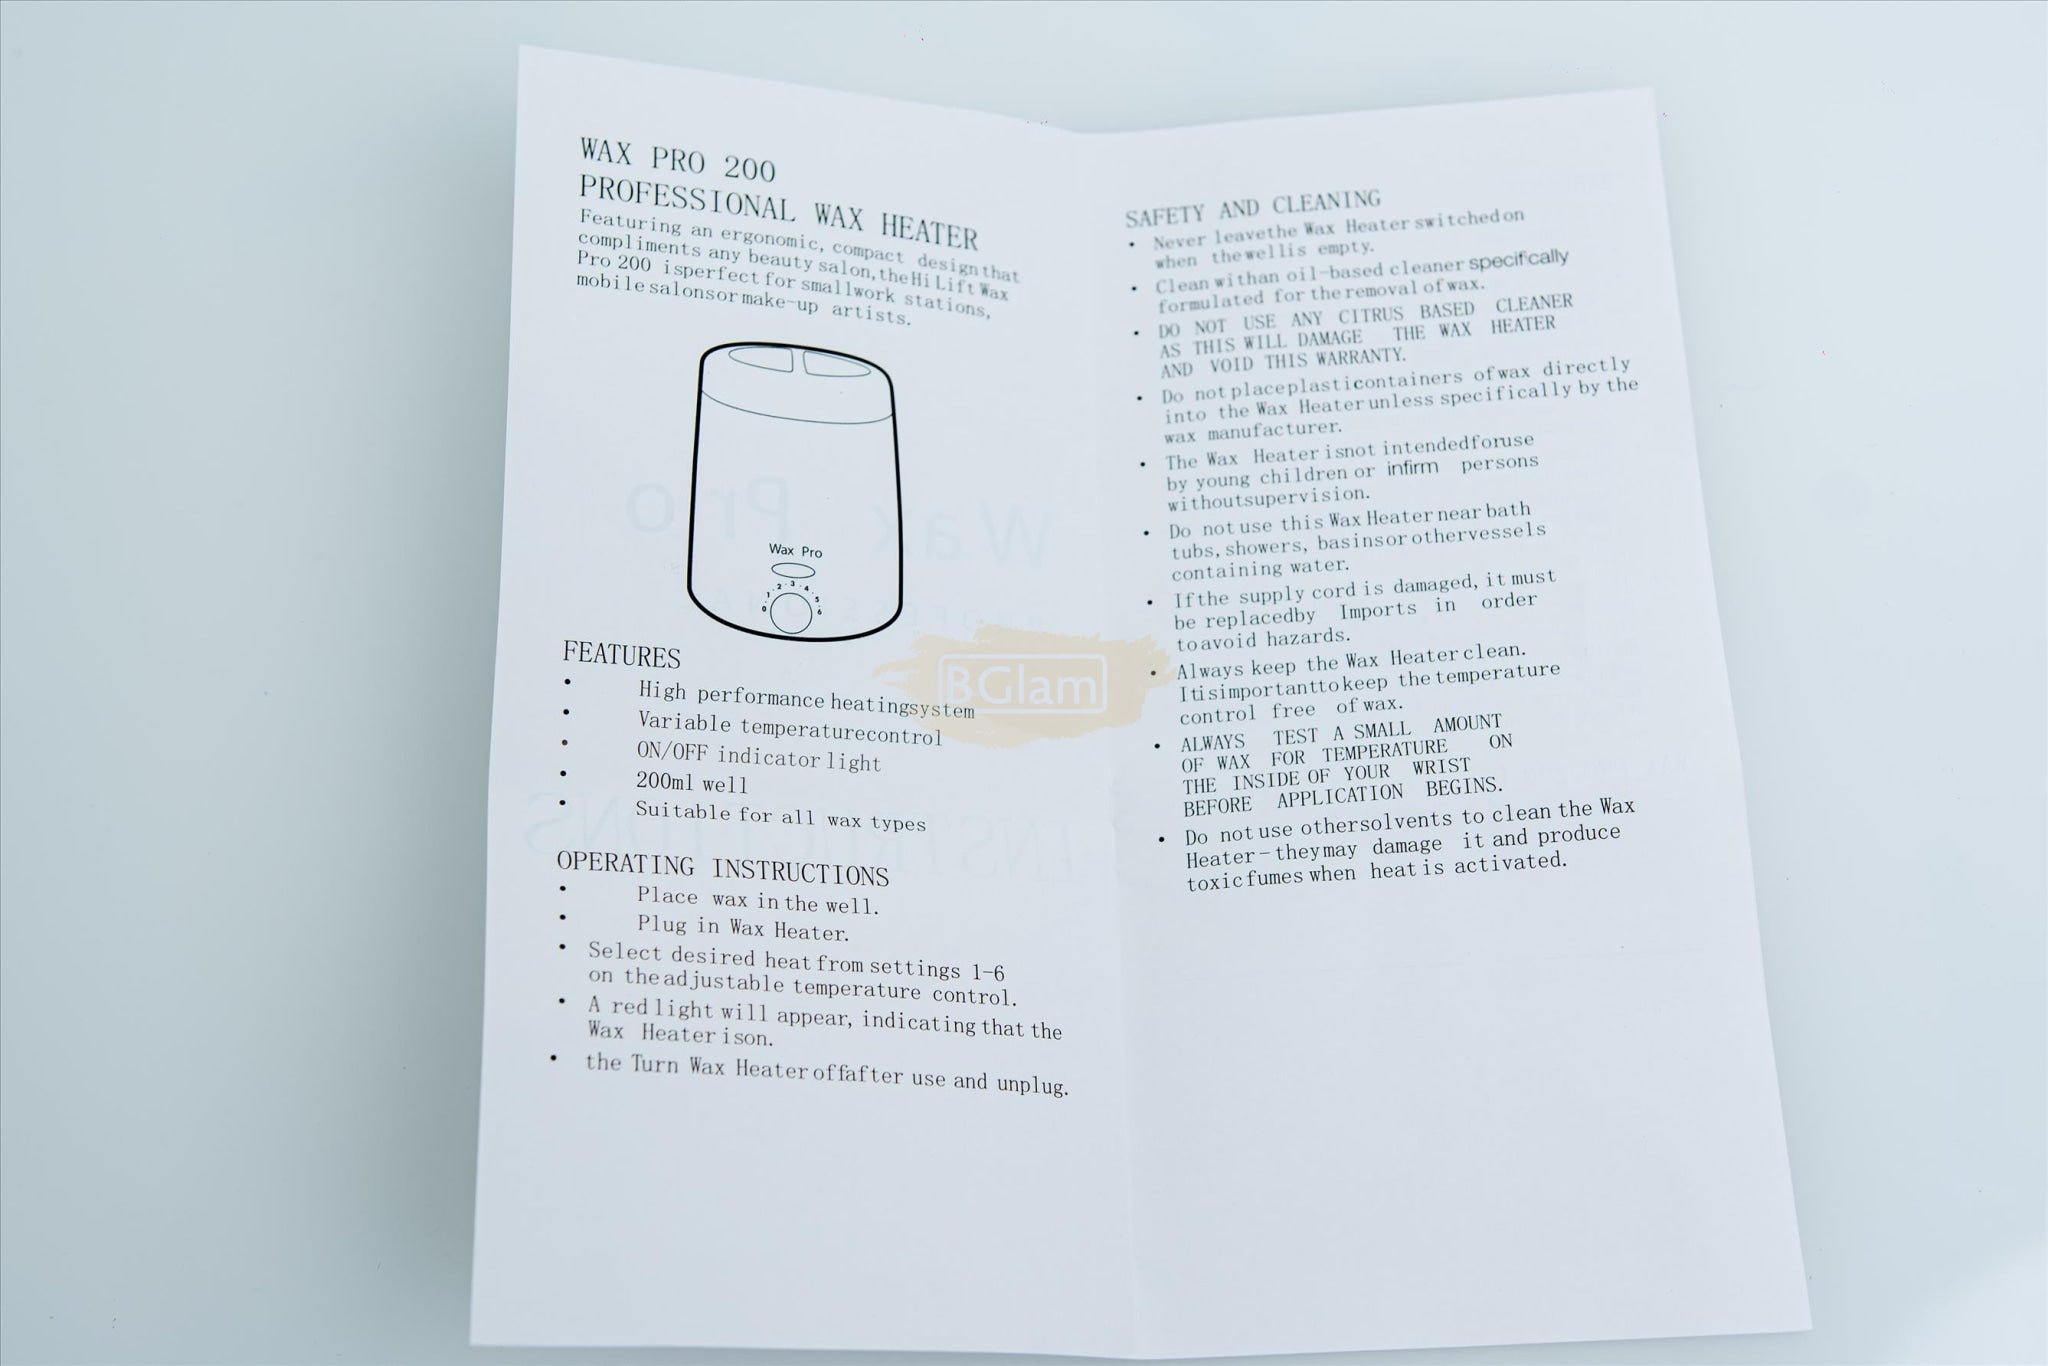 WAX PRO 200
PROFESSIONAL WAX HEATER
Featuring an ergonomic, compact design that
compliments any beauty salon, the Hi Lift Wax
Pro 200 isperfect for smallwork stations,
mobile salonsor make-up artists.
Wax Pro
0 · 1 · 2 · 3 · 4 · 5 · 6
FEATURES
• High performance heatingsystem
• Variable temperaturecontrol
• ON/OFF indicator light
• 200ml well
• Suitable for all wax types
OPERATING INSTRUCTIONS
• Place wax in the well.
• Plug in Wax Heater.
• Select desired heat from settings 1-6
on theadjustable temperature control.
• A red light will appear, indicating that the
Wax Heater ison.
• the Turn Wax Heater offafter use and unplug.
SAFETY AND CLEANING
• Never leavethe Wax Heater switched on
when thewellis empty.
• Clean withan oil-based cleaner specifically
formulated for the removal of wax.
• DO NOT USE ANY CITRUS BASED CLEANER
AS THIS WILL DAMAGE THE WAX HEATER
AND VOID THIS WARRANTY.
• Do not placeplasticontainers of wax directly
into the Wax Heater unless specifically by the
wax manufacturer.
• The Wax Heater isnot intendedforuse
by young children or infirm persons
withoutsupervision.
• Do not use this Wax Heater near bath
tubs, showers, basinsor othervessels
containing water.
• Ifthe supply cord is damaged, it must
be replacedby Imports in order
toavoid hazards.
• Always keep the Wax Heater clean.
Itisimportanttokeep the temperature
control free of wax.
• ALWAYS TEST A SMALL AMOUNT
OF WAX FOR TEMPERATURE ON
THE INSIDE OF YOUR WRIST
BEFORE APPLICATION BEGINS.
• Do not use othersolvents to clean the Wax
Heater-theymay damage it and produce
toxicfumes when heat is activated.
BGlam